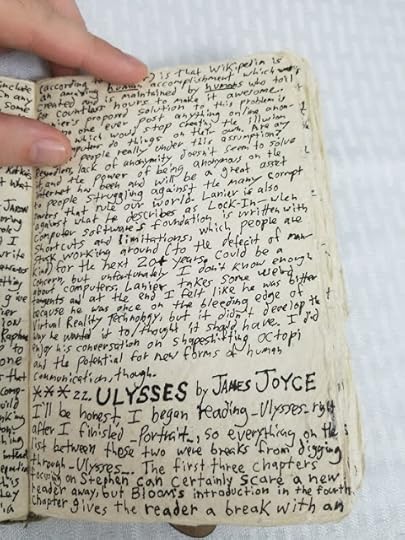 (according to ) is that Wikipedia is
an amazing human accomplishment which was
created and is maintained by humans who toil
countless hours to make it awesome.
Lanier's proposed solution to this problem is
no one ever post anything online anon-
which would stop creating the illusion
computer do things on their own. Are any
people really under this assumption?
Regardless, lack of anonymity doesn't seem to solve
it, and the power of being anonymous on the
internet has been and will be a great asset
to people struggling against the many corrupt
powers that rule our world. Lanier is also
against what he describes as Lock-In- when
computer software's foundation is written with
shortcuts and limitations, which people are
stuck working around (to the deficit of man-
kind) for the next 20+ years. Could be a
concern, but unfortunately I don't know enough
about computers. Lanier takes some weird
tangents and at the end I felt like he was bitter
because he was once on the bleeding edge of
Virtual Reality Technology, but it didn't develop the
way he wanted it to/thought it should have. I did
enjoy his conversation on shapeshifting octopi
and the potential for new forms of human
communication, though.
*** 22. ULYSSES by JAMES JOYCE
I'll be honest, I began reading _Ulysses_ right
after I finished _Portrait_, so everything on the
list between these two were breaks from digging
through _Ulysses_. The first three chapters
focusing on Stephen can certainly scare a new
reader away, but Bloom's introduction in the fourth
chapter gives the reader a break with an